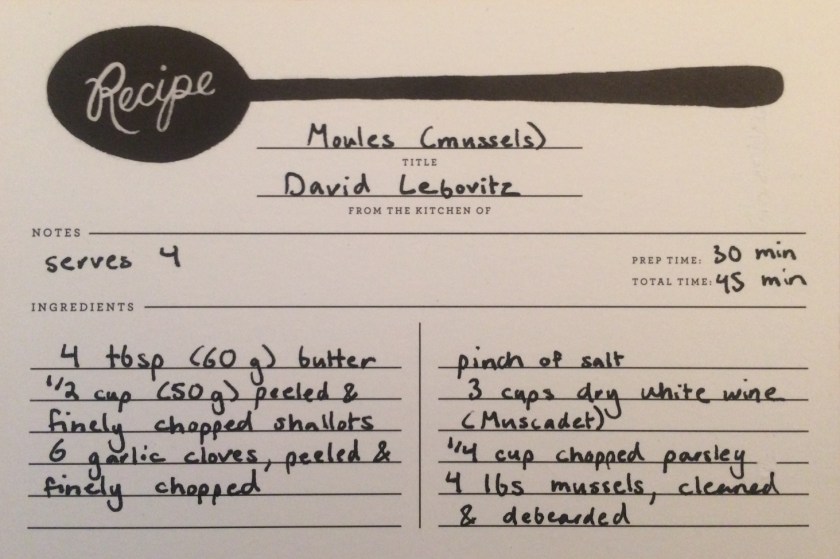 Recipe
Moules (mussels)
TITLE
David Lebovitz
FROM THE KITCHEN OF
NOTES
serves 4
PREP TIME: 30 min
TOTAL TIME: 45 min
INGREDIENTS
4 tbsp (60 g) butter
1/2 cup (50 g) peeled &
finely chopped shallots
6 garlic cloves, peeled &
finely chopped
pinch of salt
3 cups dry white wine
(Muscadet)
1/4 cup chopped parsley
4 lbs mussels, cleaned
& debearded